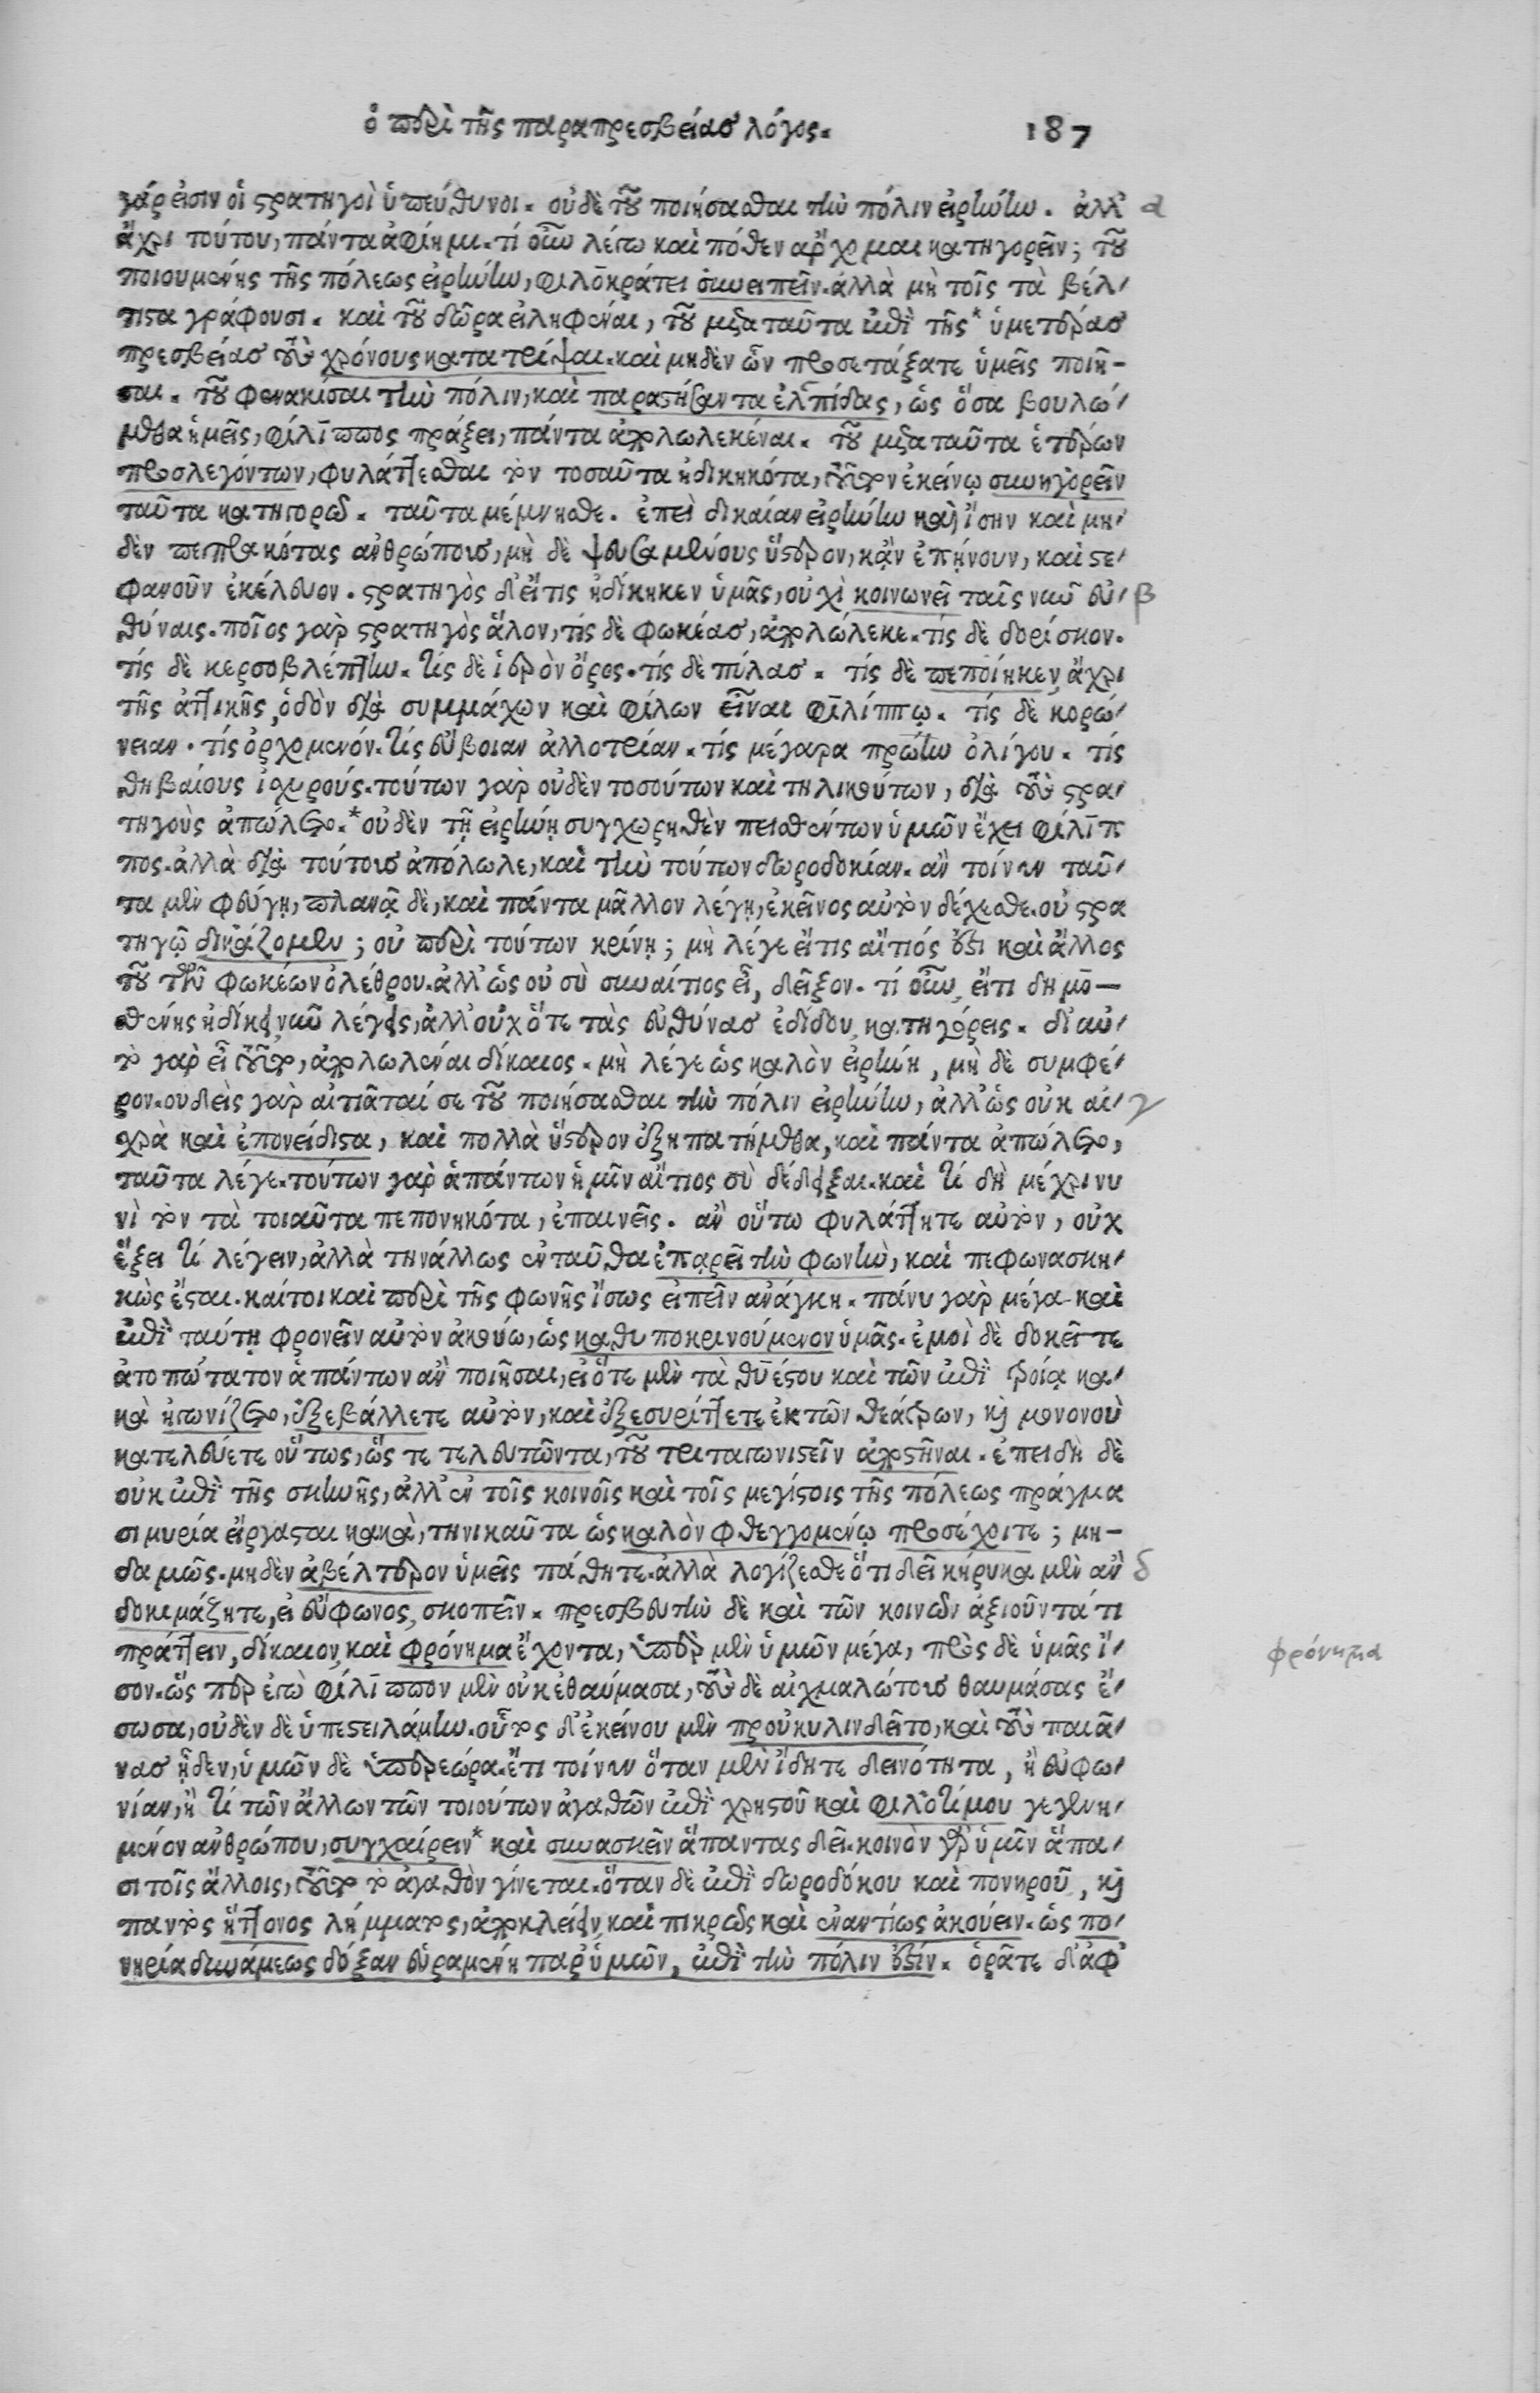 ὁ περὶ τῆς παραπρεσβείας λόγος. 187
γάρ εἰσιν οἱ στρατηγοὶ ὑπεύθυνοι. οὐδὲ τοῦ ποιήσασθαι τὴν πόλιν εἰρήνην. ἀλλ' α
ἄχρι τούτου, πάντα ἀφίημι. τί οὖν λέγω καὶ πόθεν ἄρχομαι κατηγορεῖν; τοῦ
ποιουμένης τῆς πόλεως εἰρήνην, φιλοκράτει συνειπεῖν. ἀλλὰ μὴ τοῖς τὰ βέλ-
τιστα γράφουσι. καὶ τοῦ δῶρα εἰληφέναι, τοῦ μετὰ ταῦτα ἐπὶ τῆς* ὑμετέρας
πρεσβείας τοὺς χρόνους κατατρίψαι. καὶ μηδὲν ὧν προσετάξατε ὑμεῖς ποιῆ-
σαι. τοῦ φενακίσαι τὴν πόλιν, καὶ παραστήσαντα ἐλπίδας, ὡς ὅσα βουλό-
μεθα ἡμεῖς, φίλιππος πράξει, πάντα ἀπολωλεκέναι. τοῦ μετὰ ταῦτα ἑτέρων
προλεγόντων, φυλάττεσθαι τὸν τοσαῦτα ἠδικηκότα, τοῦτον ἐκείνῳ συνηγορεῖν
ταῦτα κατηγορῶ. ταῦτα μέμνησθε. ἐπεὶ δικαίαν εἰρήνην καὶ ἴσην καὶ μη-
δὲν πεπρακότας ἀνθρώποις, μὴ δὲ ψευσαμένους ὕστερον, κἂν ἐπῄνουν, καὶ στε-
φανοῦν ἐκέλευον. στρατηγὸς δ' εἴ τις ἠδίκηκεν ὑμᾶς, οὐχὶ κοινωνεῖ ταῖς νῦν εὐ- β
θύναις. ποῖος γὰρ στρατηγὸς ἅλον, τίς δὲ φωκέας, ἀπολώλεκε. τίς δὲ δορίσκον.
τίς δὲ κερσοβλέπτην. τίς δὲ ἱερὸν ὄρος. τίς δὲ πύλας. τίς δὲ πεποίηκεν ἄχρι
τῆς ἀττικῆς, ὁδὸν διὰ συμμάχων καὶ φίλων εἶναι φιλίππῳ. τίς δὲ κορώ-
νειαν. τίς ὀρχομενόν. τίς εὔβοιαν ἀλλοτρίαν. τίς μέγαρα πρώην ὀλίγου. τίς
θηβαίους ἰσχυρούς. τούτων γὰρ οὐδὲν τοσούτων καὶ τηλικούτων, διὰ τοὺς στρα-
τηγοὺς ἀπώλετο.* οὐδὲν τῇ εἰρήνῃ συγχωρηθὲν πεισθέντων ὑμῶν ἔχει φίλιπ
πος. ἀλλὰ διὰ τούτοις ἀπόλωλε, καὶ τὴν τούτων δωροδοκίαν. ἂν τοίνυν ταῦ-
τα μὲν φεύγῃ, πλανᾷ δὲ, καὶ πάντα μᾶλλον λέγῃ, ἐκεῖνος αὐτὸν δέχεσθε. οὐ στρα
τηγῷ δικάζομεν; οὐ περὶ τούτων κρίνῃ; μὴ λέγε εἴ τις αἴτιός ἐστι καὶ ἄλλος
τοῦ τῶν φωκέων ὀλέθρου. ἀλλ' ὡς οὐ σὺ συναίτιος εἶ, δεῖξον. τί οὖν, εἴ τι δημο-
σθένης ἠδίκει νῦν λέγεις, ἀλλ' οὐχ ὅτε τὰς εὐθύνας ἐδίδου, κατηγόρεις. δι' αὐ-
τὸ γὰρ εἶ τοῦτο, ἀπολωλέναι δίκαιος. μὴ λέγε ὡς καλὸν εἰρήνη, μὴ δὲ συμφέ-
ρον. οὐδεὶς γὰρ αἰτιᾶταί σε τοῦ ποιήσασθαι τὴν πόλιν εἰρήνην, ἀλλ' ὡς οὐκ αἰ- γ
χρὰ καὶ ἐπονείδιστα, καὶ πολλὰ ὕστερον ἐξηπατήμεθα, καὶ πάντα ἀπώλετο,
ταῦτα λέγε. τούτων γὰρ ἁπάντων ἡμῖν αἴτιος σὺ δέδειξαι. καὶ τί δὴ μέχρι νυ
νὶ τὸν τὰ τοιαῦτα πεπονηκότα, ἐπαινεῖς. ἂν οὕτω φυλάττητε αὐτὸν, οὐχ
ἕξει τί λέγειν, ἀλλὰ τηνάλλως ἐνταῦθα ἐπαρεῖ τὴν φωνὴν, καὶ πεφωνασκη-
κὼς ἔσται. καίτοι καὶ περὶ τῆς φωνῆς ἴσως εἰπεῖν ἀνάγκη. πάνυ γὰρ μέγα καὶ
ἐπὶ ταύτῃ φρονεῖν αὐτὸν ἀκούω, ὡς καθυποκρινούμενον ὑμᾶς. ἐμοὶ δὲ δοκεῖτε
ἀτοπώτατον ἁπάντων ἂν ποιῆσαι, εἰ ὅτε μὲν τὰ θυέστου καὶ τῶν ἐπὶ τροίᾳ κα-
κὰ ἠγωνίζετο, ἐξεβάλλετε αὐτὸν, καὶ ἐξεσυρίττετε ἐκ τῶν θεάτρων, κ̀ μονονοὺ
κατελεύετε οὕτως, ὥς τε τελευτῶντα, τοῦ τριταγωνιστεῖν ἀποστῆναι. ἐπειδὴ δὲ
οὐκ ἐπὶ τῆς σκηνῆς, ἀλλ' ἐν τοῖς κοινοῖς καὶ τοῖς μεγίστοις τῆς πόλεως πράγμα
σι μυρία εἴργασται κακὰ, τηνικαῦτα ὡς καλὸν φθεγγομένῳ προσέχοιτε; μη-
δαμῶς. μηδὲν ἀβέλτερον ὑμεῖς πάθητε. ἀλλὰ λογίζεσθε ὅτι δεῖ κήρυκα μὲν ἂν δ
δοκιμάζητε, εἰ εὔφωνος, σκοπεῖν. πρεσβευτὴν δὲ καὶ τῶν κοινῶν ἀξιοῦντά τι
πράττειν, δίκαιον, καὶ φρόνημα ἔχοντα, ὑπὲρ μὲν ὑμῶν μέγα, πρὸς δὲ ὑμᾶς ἴ- φρόνημα
σον. ὥς περ ἐγὼ φίλιππον μὲν οὐκ ἐθαύμασα, τοὺς δὲ αἰχμαλώτους θαυμάσας ἔ-
σωσα, οὐδὲν δὲ ὑπεστειλάμην. οὗτος δ' ἐκείνου μὲν προὐκυλινδεῖτο, καὶ τοὺς παιᾶ-
νας ᾖδεν, ὑμῶν δὲ ὑπερεώρα. ἔτι τοίνυν ὅταν μὲν ἴδητε δεινότητα, ἢ εὐφω-
νίαν, ἤ τι τῶν ἄλλων τῶν τοιούτων ἀγαθῶν ἐπὶ χρηστοῦ καὶ φιλοτίμου γεγενη-
μένον ἀνθρώπου, συγχαίρειν* καὶ συνασκεῖν ἅπαντας δεῖ. κοινὸν γὰρ ὑμῖν ἅπα-
σι τοῖς ἄλλοις, τοῦτο τὸ ἀγαθὸν γίνεται. ὅταν δὲ ἐπὶ δωροδόκου καὶ πονηροῦ, κ̀
παντὸς ἥττονος λήμματος, ἀποκλείειν καὶ πικρῶς καὶ ἐναντίως ἀκούειν. ὡς πο-
νηρία δυνάμεως δόξαν εὑραμένη παρ' ὑμῶν, ἐπὶ τὴν πόλιν ἐστίν. ὁρᾶτε δ' ἀφ'